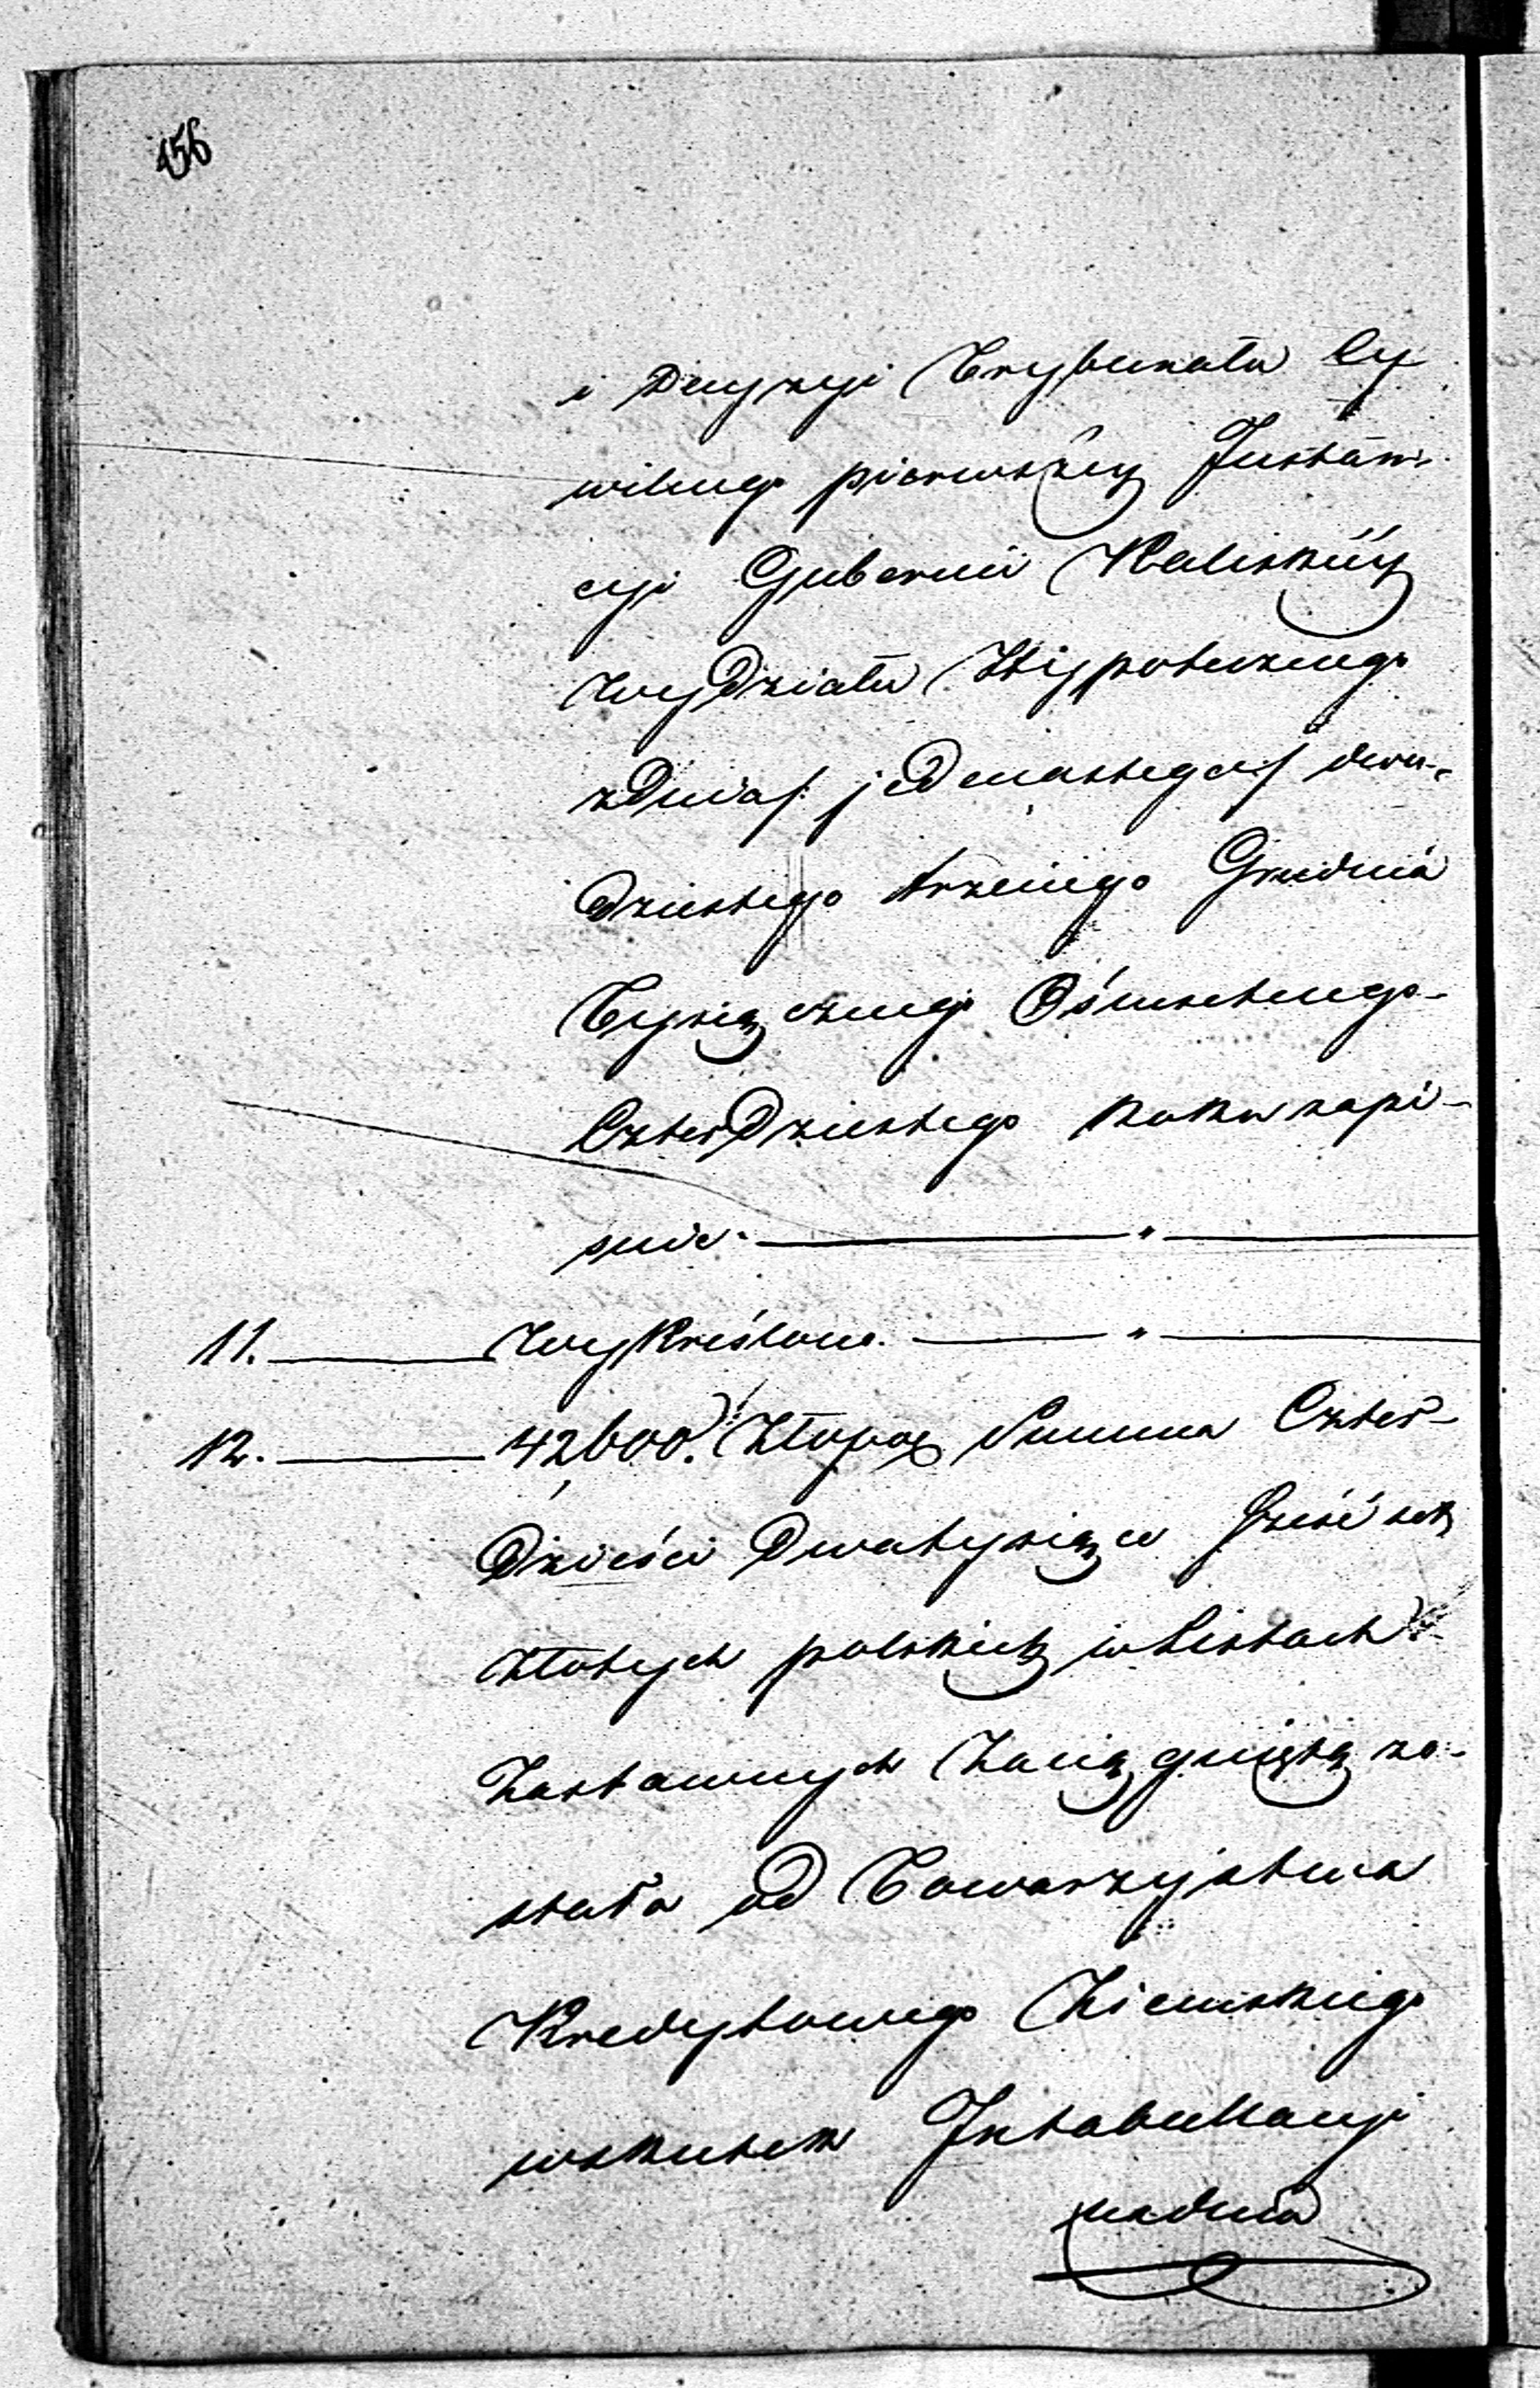 456
i Decyzyi Trybunału Cy
wilnego pierwszey Instan-
cyi Gubernii Kaliskiéy
Wydziału Hypotecznego
z Dnia /: jedenastego :/ dwu-
Dziestego trzeciego Grudnia
Tysiącznego Ośmsetnego-
CzterDziestego Roku zapi-
snie. — " —
11. — Wykreślone. — " —
12. — 42,600. Złopol Summa Czter-
Dzieści Dwatysiące Sześćset
złotych polskich w Listach
Zastawnych Zaciągniętą zo-
stała od Towarzystwa
Kredytowego Ziemskiego
wskutek Intabullacyi
nadnia